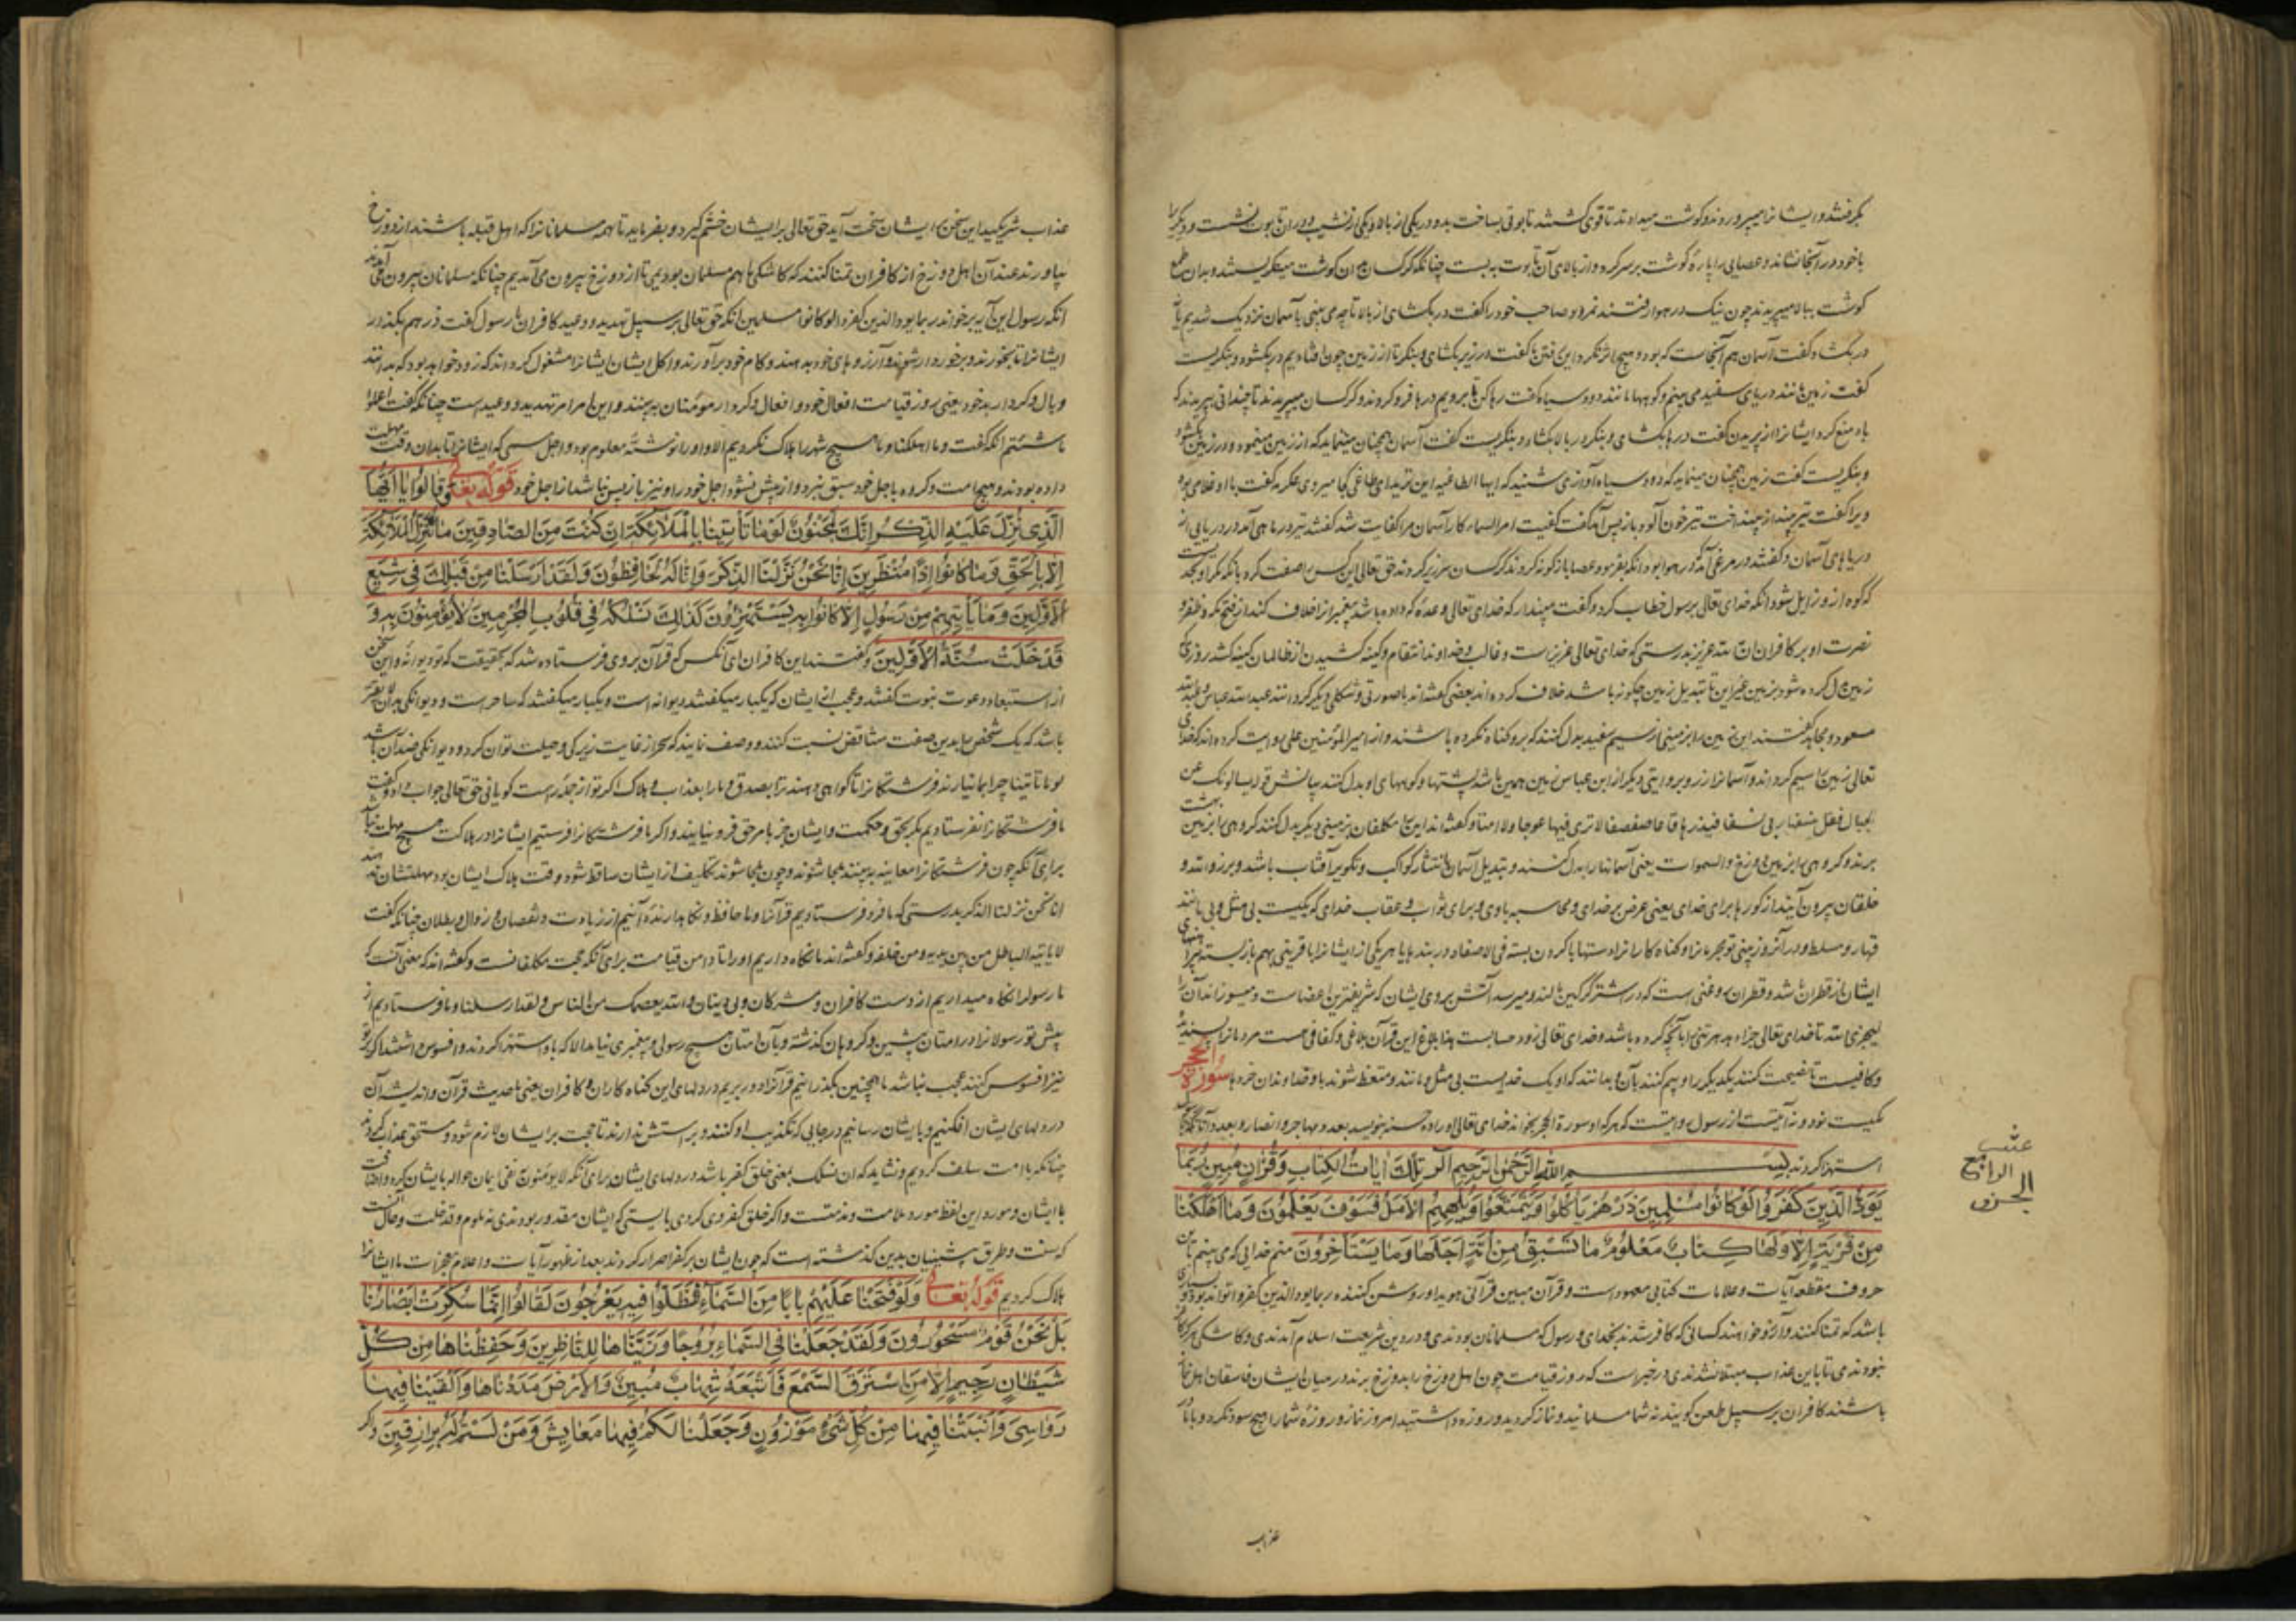 بکرفتند و ایشانرا میپروردند و کوشت میدادند تا قوی کشتند تابوتی بساخت بدو در یکی از بالا و یکی از نشیب و در آن تابوت نشست و دیکریرا
با خود در آنجا نشاند و عصایی را پارۀ کوشت بر سر کرد و از بالای آن تابوت به بست چنانکه کرکسان در آن کوشت مینکریستند و بدان طمع
کوشت ببالا میپریدند چون نیک در هوا رفتند نمرود صاحب خود را کفت در بکشای از بالا تا چه می بینی بآسمان نزدیک شدیم یا نه
در بکشاد کفت آسمان هم آنجاست که بود و هیچ اثر نکرد این رفتن ما کفت در زیر بکشای و بنکر تا از زمین چون افتادیم در بکشود و بنکریست
کفت زمین مانند دریای سفید می بینم و کوهها مانند دود سیاه کفت رها کن تا برویم درها فرو کردند و کرکسان میپریدند تا چندانی بپریدند که
باد منع کرد ایشانرا از پریدن کفت درها بکشای و بنکر در بالا بکشاد و بنکریست کفت آسمان همچنان مینماید که از زمین مینمود و در زیرین بکشود
و بنکریست کفت زمین همچنان مینماید که دود سیاه آوازی شنید که ایها الطاغیه این ترید ای طاغی کجا میروی عکرمه کفت با او غلامی بود
ویرا کفت تیر بینداز بینداخت تیر خون آلود باز پس آمد کفت کفیت امر السماء کار آسمان مرا کفایت شد
دریاهای آسمان و کفتند در مرغی آمد که در هوا بود آنکه بفرمود عصا بازکونه کردند کرکسان سر زیر کردند حق تعالی این کس را صفت کرد بآنکه مکر او بحدیست
که کوه از او زایل شود آنکه خدای تعالی برسول خطاب کرد و کفت مپندار که خدای تعالی وعدۀ که داده باشد پیغمبر انرا خلاف کند از فتح مکه و ظفر و
نصرت او بر کافران ان الله عزیز بدرستی که خدای تعالی عزیز است و غالب و خداوند انتقام و کینه کشیدن از ظالمان کینه کشد روزی که
زمین بدل کرده شود بزمین غیر این تا تبدیل زمین چکونه باشد خلاف کرده اند بعضی کفته اند با صورتی و شکلی دیکر کردانند عبد الله عباس و عبد الله
مسعود و مجاهد کفتند این زمین را بزمینی از سیم سفید بدل کنند که برو کناه نکرده باشند و از امیر المؤمنین علی روایت کرده اند که خدای
تعالی زمین را سیم کرداند و آسمانرا زر و بروایتی دیکر از ابن عباس زمین همین باشد پشتها و کوههای او بدل کنند بیانش قوله یسالونک عن
الجبال فقل ینسفها ربی نسفا فیذرها قاعا صفصفا لا تری فیها عوجا ولا امتا و کفته اند این را مکلفان بزمینی دیکر بدل کنند کروهی را بزمین بهشت
برند و کروهی را بزمین دوزخ و السموات یعنی آسمانها را بدل کنند و تبدیل آسمان بانتثار کواکب و تکویر آفتاب باشد و برزوا لله و
خلقان بیرون آیند از کورها برای خدای یعنی عرض بر خدای و محاسبه با وی و برای ثواب و عقاب خدای که یکیست بی مثل و بی مانند
قهار و مسلط و در آنروز بینی تو مجرمانرا و کناه کارانرا دستها با کردن بسته فی الاصفاد در بندها یا هر یکی از ایشانرا با قرینی بهم باز بسته
ایشان از قطران باشد و قطران روغنی است که در اشتر کرکین مالند و میرسد آتش بروی ایشان که شریفترین اعضاست و میسوزاند آن
لیجزی الله تا خدای تعالی جزاء بدهد هر تنی را بآنچه کرده باشد و خدای تعالی زود حسابست هذا بلاغ این قرآن بلاغی و کفافی هست مردمانرا
و کافیست تا نصیحت کنند یکدیکر را و بیم کنند بآن و بدانند که او یک خدایست بی مثل و مانند و متعظ شوند باو خداوندان خرد سورة الحجر
یکیست نود و نه آیتست از رسول روایتست که هر که او سورة الحجر بخواند خدای تعالی او را ده حسنه بنویسد بعدد مهاجر و انصار و بعدد آنانکه
استهزا کردند بسم الله الرحمن الرحیم الر تلک ایات الکتاب و قران مبین ربما
یود الذین کفروا لو کانوا مسلمین ذرهم یاکلوا و یتمتعوا و یلههم الامل فسوف یعلمون و ما اهلکنا
من قریة الا ولها کتاب معلوم ما تسبق من امة اجلها وما یستاخرون منم خدایی که می بینم این
حروف مقطعه آیات و علامات کتابی معهود است و قرآن مبین قرآنی هویدا و روشن کننده ربما یود الذین کفروا
باشد که تمنا کنند و آرزو خواهند کسانی که کافر شدند بخدای و رسول که مسلمانان بودندی و در دین شریعت اسلام آمدندی و کاشکی هرکز کافر
نبودندی تا باین عذاب مبتلا نشدندی در خبر است که روز قیامت چون اهل دوزخ را بدوزخ برند و در میان ایشان فاسقان اهل نماز
باشند کافران بر سبیل طعن کویند نه شما مسلمانید و نماز کردید و روزه داشتید امروز نماز و روزۀ شما را هیچ سود نکرد و با ما در
الرابع
الجزو
عذاب
عذاب شریکید این سخن بر ایشان سخت آید حق تعالی بر ایشان خشم کیرد و بفرماید تا همه مسلمانانرا که اهل قبله باشند از دوزخ
بیاورند عند آن اهل دوزخ از کافران تمنا کنند که کاشکی ما هم مسلمان بودیمی تا از دوزخ بیرون می آمدیم چنانکه مسلمانان بیرون می آیند
آنکه رسول این آیه بر خواند ربما یود الذین کفروا لو کانوا مسلمین آنکه حق تعالی بر سبیل تهدید و وعید کافران با رسول کفت ذرهم بکذار
ایشانرا تا بخورند و برخوردار شوند و آرزوهای خود بدهند و کام خود برآورند و امل ایشان ایشانرا مشغول کرداند که زود خواهد بود که بدانند
وبال و کردار بد خود یعنی روز قیامت افعال خود و افعال و کردار مؤمنان به بینند و این امر امر تهدید و وعید است چنانکه کفت اعملوا
ما شئتم آنکه کفت وما اهلکنا و ما هیچ شهر را هلاک نکردیم الا و او را نوشتۀ معلوم بود و اجل مسمی که ایشانرا تا بدان وقت مهلت
داده بودند و هیچ امت و کروه با جل خود سبق نبرد و از پیش نشود اجل خود را و نیز باز پس نباشد از اجل خود قوله تعالی و قالوا یا ایها
الذی نزل علیه الذکر انک لمجنون لو ما تاتینا بالملائکة ان کنت من الصادقین ما ننزل الملائکة
الا بالحق وما کانوا اذا منظرین انا نحن نزلنا الذکر و انا له لحافظون ولقد ارسلنا من قبلک فی شیع
الاولین وما یاتیهم من رسول الا کانوا به یستهزؤن کذلک نسلکه فی قلوب المجرمین لا یؤمنون به و
قد خلت سنة الاولین و کفتند این کافران ای آنکس که قرآن بروی فرستاده شد که بحقیقت که تو دیوانۀ و این سخن
از استبعاد دعوت نبوت کفتند و عجب از ایشان که یکبار میکفتند دیوانه است و یکبار میکفتند که ساحر است و دیوانکی
باشد که یک شخص را بدین صفت متناقض نسبت کنند و وصف نمایند که سحر از غایت زیرکی و حیلت توان کرد و دیوانکی ضد آن باشد
لو ما تاتینا چرا بما نیارند فرشتکانرا تا کواهی دهند ترا بصدق و ما را بعذاب و هلاک اکر تو از جملۀ راست کویانی حق تعالی جواب داد و کفت
ما فرشتکانرا نفرستادیم مکر بحق و حکمت و ایشان جز بامر حق فرو نیایند و اکر ما فرشتکانرا فرستیم ایشانرا در هلاکت هیچ مهلت نباشد
برای آنکه چون فرشتکانرا معاینه به بینند ملجا شوند و چون ملجا شوند تکلیف از ایشان ساقط شود و وقت هلاک ایشان بود مهلتشان ندهند
انا نحن نزلنا الذکر بدرستی که ما فرو فرستادیم قرآنرا و ما حافظ و نکاهدارندۀ آنیم از زیادت و نقصان و زوال و بطلان چنانکه کفت
لا یاتیه الباطل من بین یدیه و من خلفه و کفته اند ما نکاه داریم او را تا دامن قیامت برای آنکه حجت مکلفانست و کفته اند که معنی آنست که
ما رسول را نکاه میداریم از دست کافران و مشرکان و بی دینان و الله یعصمک من الناس ولقد ارسلنا و ما فرستادیم از
پیش تو رسولانرا در امتان پیشین و کروهان کذشته و بآن امتان هیچ رسولی و پیغمبری نیامد الا که باو استهزا کردند و افسوس داشتند اکر بتو
نیز افسوس کنند عجب نباشد ما همچنین بکذرانیم قرآنرا و در بریم در دلهای این کناه کاران و کافران یعنی ما حدیث قرآن و اندیشه آن
در دلهای ایشان افکنیم و بایشان رسانیم در جایی که تکذیب او کنند و براستش ندارند تا حجت بر ایشان لازم شود و مستحق عذاب کردند
چنانکه با امت سلف کردیم و نشاید که ان نسلک بمعنی خلق کفر باشد در دلهای ایشان برای آنکه لا یؤمنون نفی ایمان حواله بایشان کرد و اضافت
با ایشان و مورد این لفظ مورد ملامت و مذمتست و اکر خلق کفر وی کردی بایستی که ایشان مقدور بودندی نه ملوم و قد خلت و حال آنست
که سنت و طریق پیشینیان بدین کذشته است که چون ایشان بر کفر اصرار کردند بعد از ظهور آیات و اعلام معجزات ما ایشانرا
هلاک کردیم قوله تعالی ولو فتحنا علیهم بابا من السماء فظلوا فیه یعرجون لقالوا انما سکرت ابصارنا
بل نحن قوم مسحورون ولقد جعلنا فی السماء بروجا و زیناها للناظرین و حفظناها من کل
شیطان رجیم الا من استرق السمع فاتبعه شهاب مبین والارض مددناها والقینا فیها
رواسی وانبتنا فیها من کل شیء موزون وجعلنا لکم فیها معایش ومن لستم له برازقین و اکر